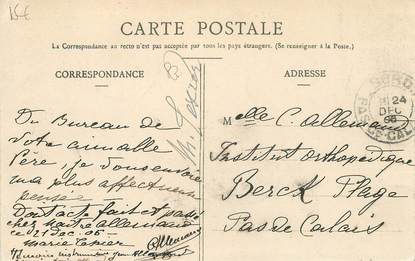 15€
CARTE POSTALE
La Correspondance au recto n'est pas acceptée par tous les pays étrangers. (Se renseigner à la Poste.)
CORRESPONDANCE
ADRESSE
Du Bureau de
votre aimable
Père, je vous envoie
ma plus affectueuse
pensée
Dont acte fait et passé
chez maître Allemand
ce 21 Déc. 06
Marie
Allemand
24
DEC
PAS-DE-CALAIS
Melle C. Allemand
Institut Orthopédique
Berck Plage
Pas de Calais